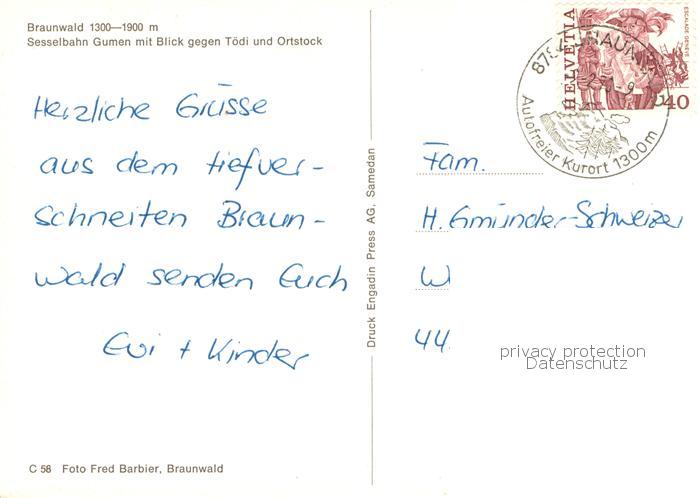 Braunwald 1300—1900 m
Sesselbahn Gumen mit Blick gegen Tödi und Ortstock
Herzliche Grüsse
aus dem tiefver-
schneiten Braun-
wald senden Euch
Evi + Kinder
C 58 Foto Fred Barbier, Braunwald
Druck Engadin Press AG, Samedan
HELVETIA
ESCALADE GENÈVE
40
Autofreier Kurort 1300m
Fam.
H. Gmünder-Schweizer
W
44
privacy protection
Datenschutz